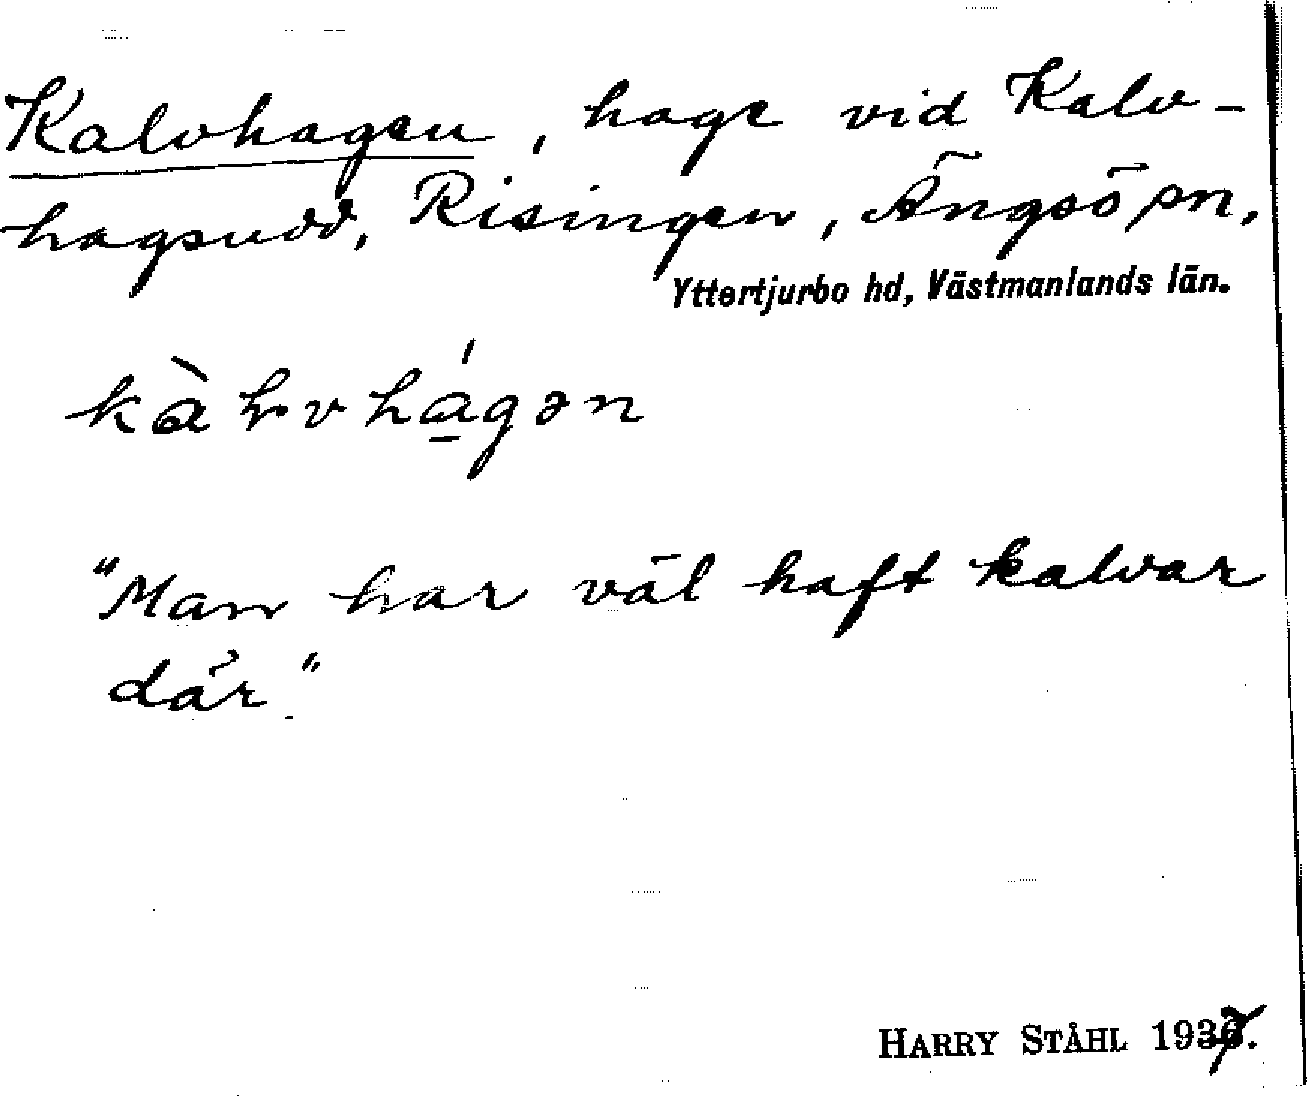 Kalvhagen, hage vid Kalv-
hagsudd, Risingen, Ängsö sn,
Yttertjurbo hd, Västmanlands län.
"Man har väl haft kalvar
där"
HARRY STÅHL 1937.